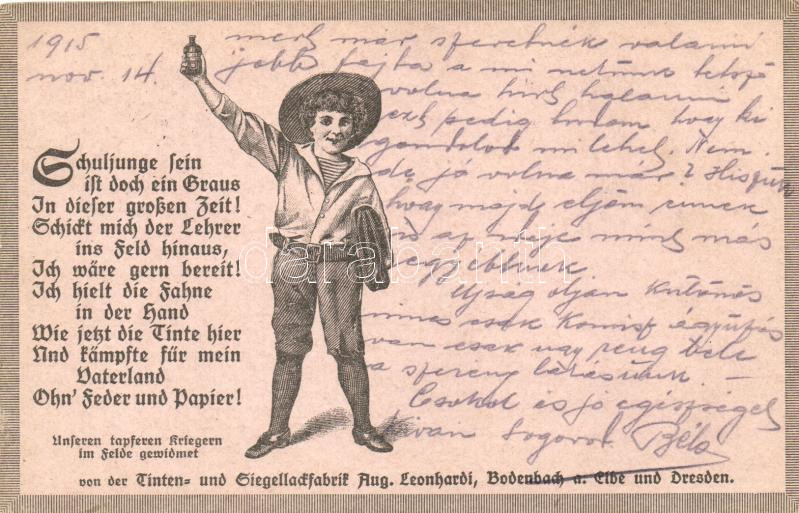 1915
nov. 14.
mert már szeretnék valami
jobb fajta a mi
volna hirt hallani
ezt pedig tudom hogy ki
gondolod mi lehet. Nem
de jó volna már? Hiszük
hogy majd eljön ennek
is az ideje mint más
egyebbnek
Ujság olyan különös
nincs csak Komisz ágyúzás
van csak ugy reng bele
a szerény lakásunk –
Csokol és jó egészséget
kiván Sogorod Béla
Schuljunge sein
ist doch ein Graus
In dieser großen Zeit!
Schickt mich der Lehrer
ins Feld hinaus,
Ich wäre gern bereit!
Ich hielt die Fahne
in der Hand
Wie jetzt die Tinte hier
Und kämpfte für mein
Vaterland
Ohn' Feder und Papier!
Unseren tapferen Kriegern
im Felde gewidmet
von der Tinten- und Siegellackfabrik Aug. Leonhardi, Bodenbach a. Elbe und Dresden.
darabanth